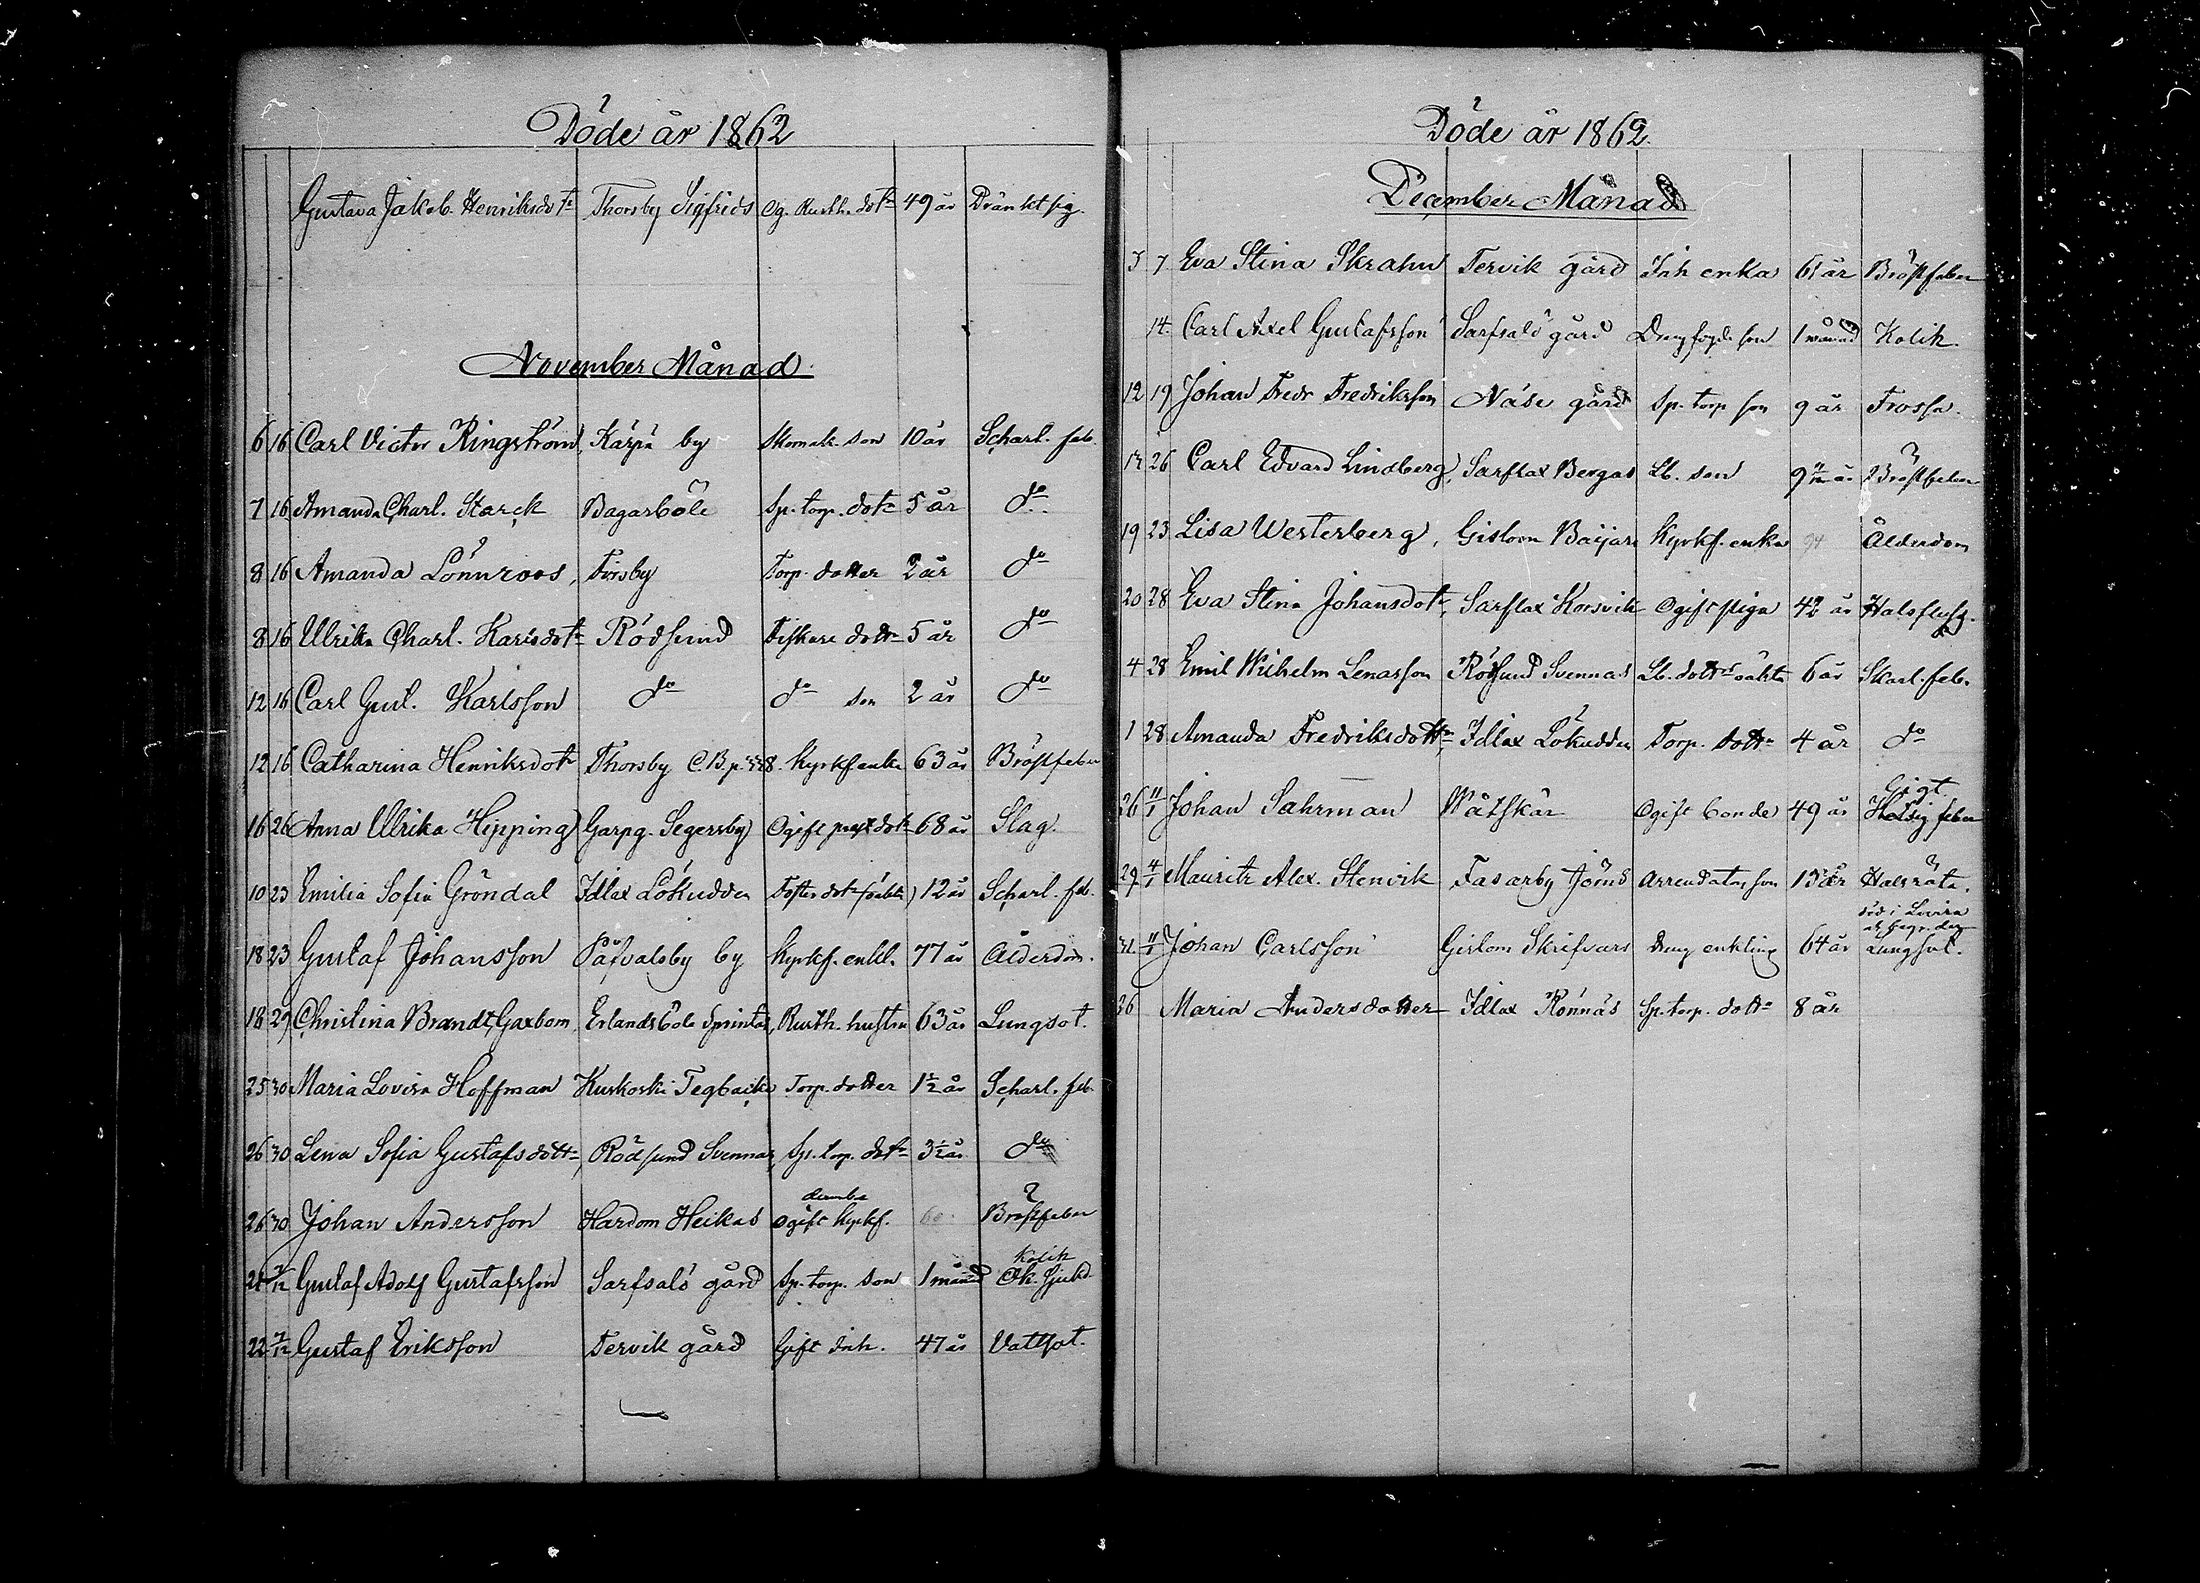 Döde år 1862
Gustava Jakob. Henriksdtr Thorsby Sigfrids Og. Rusth. dotr 49 år Dränkt sig.
November Månad.
6 16 Carl Victor Ringström, Kärpä by Skomak. son 10 år Scharl. feb.
7 16 Amanda Charl. Starck Bagarböle Sp. torp. dotr 5 år do
8 16 Amanda Lönnroos, Forsby Torp. dotter 2 år do
8 16 Ulrika Charl. Karlsdotr Rödsund Fiskare dottr 5 år do
12 16 Carl Gust. Karlsson do do son 2 år do
12 16 Catharina Henriksdotr Thorsby C.B.p. Kyrkf enka 63 år Bröstfeber
16 26 Anna Ulrika Hipping Garpg. Segersby Ogift prost dotr 68 år Slag.
10 23 Emilia Sofia Gröndal Idlax Lökudden Foster dotr (oäkta) 12 år Scharl. feb.
18 23 Gustaf Johansson Påfvalsby by Kyrkf. enkl. 77 år Ålderdom.
18 29 Christina Brandt, Gaxbom, Erlandsböle Sprintas Rusth. hustru 63 år Lungsot.
25 30 Maria Lovisa Hoffman Kuskoski Tegbacka Torp. dotter 1 1/2 år Scharl. feb.
26 30 Lena Sofia Gustafsdottr Rödsund Svennas Sp. torp. dotr 3 1/2 år do
26 30 Johan Andersson Hardom Heikas ogift kyrkf. 60 Bröstfeber
Kolik
7/12 Gustaf Adolf Gustafsson Sarfsalö gård Sp. torp. son 1 månad Ok. Sjukd.
22 7/12 Gustaf Eriksson Tervik gård Gift Inh. 47 år Vattsot.
Döde år 1862.
December Månad
3 7 Eva Stina Skrahn Tervik gård Inh enka 61 år Bröstfeber
14. Carl Axel Gustafsson Sarfsalö gård Drengfogde son 1 månad Kolik.
12 19 Johan Fredr Fredriksson Näse gård Sp. torp son 9 år Frossa.
26 Carl Edvard Lindberg, Sarflax Bergas Lb. son Bröstfeber
19 23 Lisa Westerberg, Gislom Baijars Kyrkf. enka 74 Ålderdom
20 28 Eva Stina Johansdotr, Sarflax Korsvik Ogift piga 42 år Halsflusz.
4 28 Emil Wilhelm Lenasson Rödsund Svennas Lb. dottrs oäkta 6 år Skarl. feb.
1 28 Amanda Fredriksdottr, Idlax Lökudden Torp. dottr 4 år do
Gigt
26 11/1 Johan Sahrman Wåtskär Ogift bonde 49 år Hetsig feber
29 4/1 Mauritz Alex. Stenvik Fasarby Jöns Arrendators son Halsröta.
död i Lovisa
31 11/1 Johan Carlsson Gislom Skrifvars Dreng enkling 64 år Lungsot.
26 Maria Andersdotter Idlax Rönnäs Sp. torp. dottr 8 år